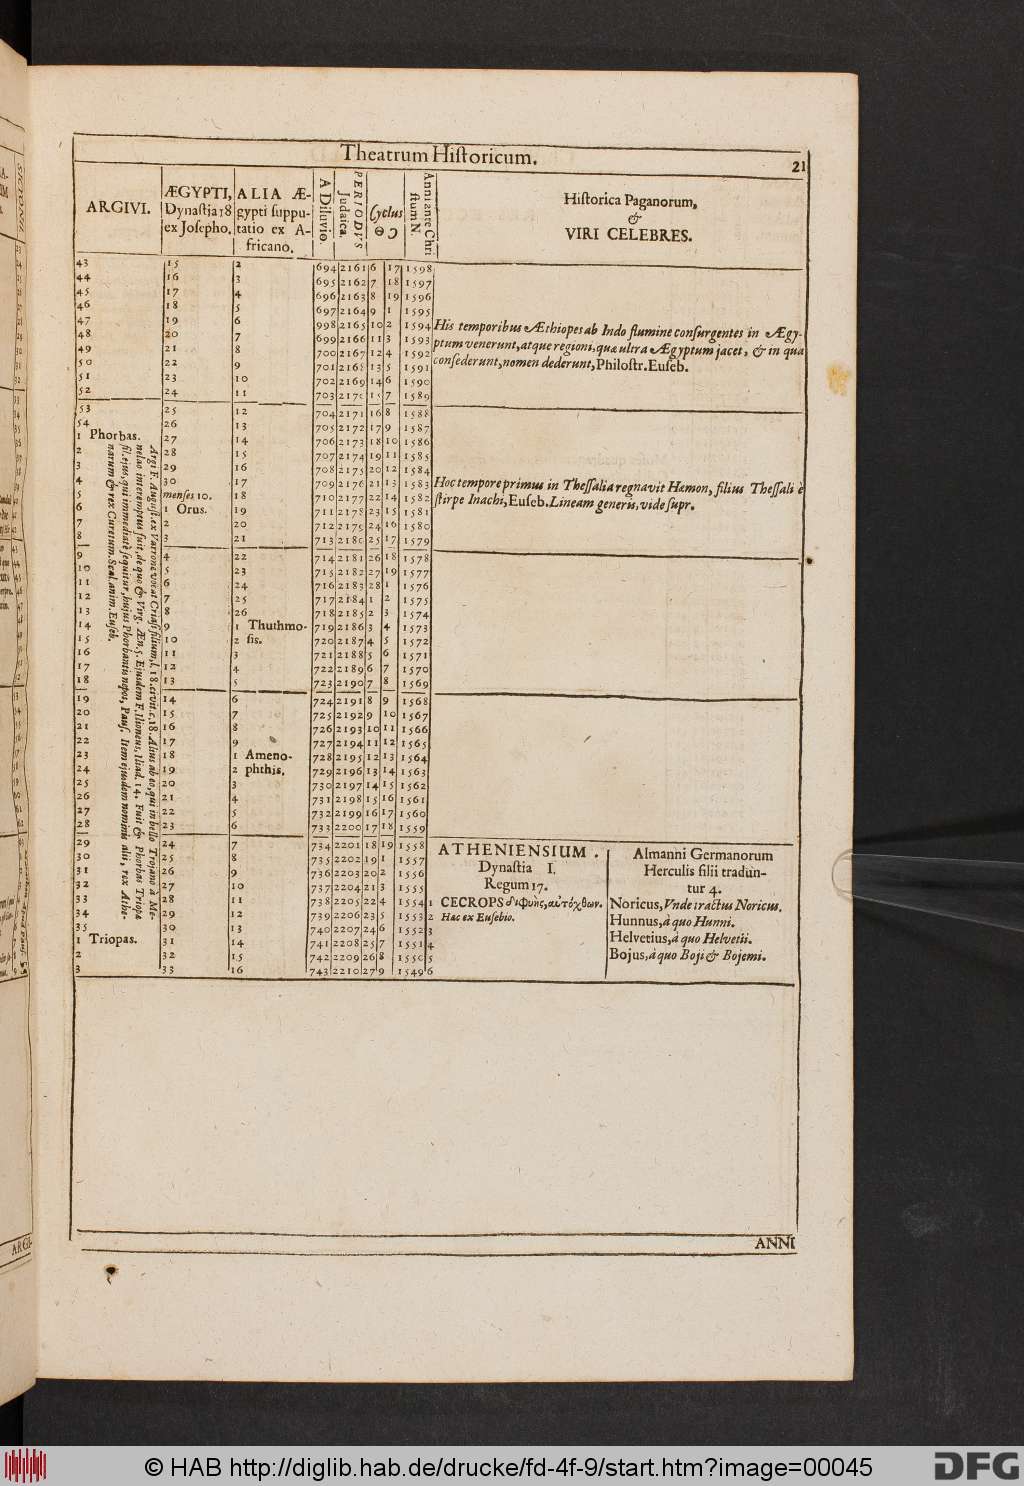 Theatrum Historicum.
21
ARGIVI.
ÆGYPTI,
Dynastia 18
ex Josepho.
ALIA Æ-
gypti suppu-
tatio ex A-
fricano.
A Diluvio.
PERIODVS
Judaica.
Cyclus
☉ ☾
Anni ante Chri
stum N
Historica Paganorum,
&
VIRI CELEBRES.
43 15 2 694 2161 6 17 1598
44 16 3 695 2162 7 18 1597
45 17 4 696 2163 8 19 1596
46 18 5 697 2164 9 1 1595
47 19 6 998 2165 10 2 1594
48 20 7 699 2166 11 3 1593
49 21 8 700 2167 12 4 1592
50 22 9 701 2168 13 5 1591
51 23 10 702 2169 14 6 1590
52 24 11 703 2170 15 7 1589
His temporibus Æthiopes ab Indo flumine consurgentes in Ægy-
ptum venerunt, atque regioni, quæ ultra Ægyptum jacet, & in qua
consederunt, nomen dederunt, Philostr. Euseb.
53 25 12 704 2171 16 8 1588
54 26 13 705 2172 17 9 1587
1 Phorbas. 27 14 706 2173 18 10 1586
2 28 15 707 2174 19 11 1585
3 29 16 708 2175 20 12 1584
4 30 17 709 2176 21 13 1583
5 menses 10. 18 710 2177 22 14 1582
6 1 Orus. 19 711 2178 23 15 1581
7 2 20 712 2179 24 16 1580
8 3 21 713 2180 25 17 1579
Hoc tempore primus in Thessalia regnavit Hæmon, filius Thessali è
stirpe Inachi, Euseb. Lineam generis, vide supr.
9 4 22 714 2181 26 18 1578
10 5 23 715 2182 27 19 1577
11 6 24 716 2183 28 1 1576
12 7 25 717 2184 1 2 1575
13 8 26 718 2185 2 3 1574
14 9 1 Thuthmo- 719 2186 3 4 1573
15 10 2 sis. 720 2187 4 5 1572
16 11 3 721 2188 5 6 1571
17 12 4 722 2189 6 7 1570
18 13 5 723 2190 7 8 1569
19 14 6 724 2191 8 9 1568
20 15 7 725 2192 9 10 1567
21 16 8 726 2193 10 11 1566
22 17 9 727 2194 11 12 1565
23 18 1 Ameno- 728 2195 12 13 1564
24 19 2 phthis. 729 2196 13 14 1563
25 20 3 730 2197 14 15 1562
26 21 4 731 2198 15 16 1561
27 22 5 732 2199 16 17 1560
28 23 6 733 2200 17 18 1559
29 24 7 734 2201 18 19 1558
30 25 8 735 2202 19 1 1557
31 26 9 736 2203 20 2 1556
32 27 10 737 2204 21 3 1555
33 28 11 738 2205 22 4 1554 1
34 29 12 739 2206 23 5 1553 2
35 30 13 740 2207 24 6 1552 3
1 Triopas. 31 14 741 2208 25 7 1551 4
2 32 15 742 2209 26 8 1550 5
3 33 16 743 2210 27 9 1549 6
Argi F. August. ex Varrone vocat Criasi filium, l. 18. civit. c. 18. Alius ab eo, qui in bello Trojano à Me-
nelao interemptus fuit, de quo & Virg. Æn. 5. Ejusdem F. Ilioneus, Iliad. 14. Fuit & Phorbas Triopæ
fil. ejus, qui immediatè sequitur, hujus Phorbantis nepos, Paus. Item ejusdem nominis alii, rex Athe-
narum & rex Curetum. Scal. anim. Euseb.
ATHENIENSIUM.
Dynastia I.
Regum 17.
CECROPS διφυὴς, αὐτόχθων.
Hæc ex Eusebio.
Almanni Germanorum
Herculis filii tradun-
tur 4.
Noricus, Vnde tractus Noricus.
Hunnus, à quo Hunni.
Helvetius, à quo Helvetii.
Bojus, à quo Boji & Bojemi.
ANNI
© HAB http://diglib.hab.de/drucke/fd-4f-9/start.htm?image=00045
DFG